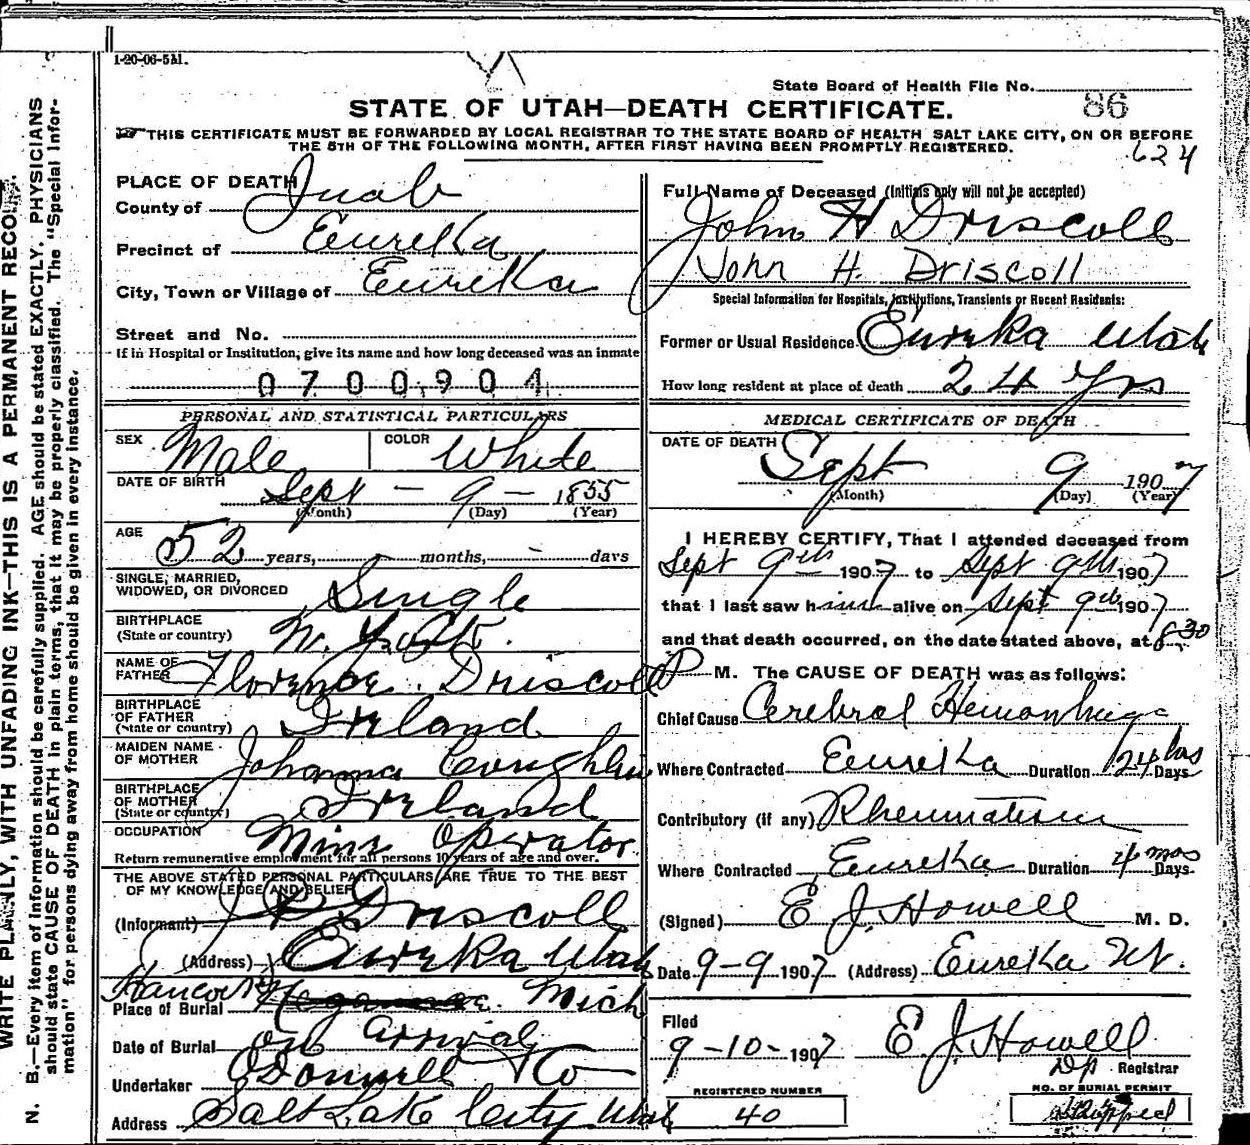 1-20-06-5M.
State Board of Health File No. 86
STATE OF UTAH—DEATH CERTIFICATE.
THIS CERTIFICATE MUST BE FORWARDED BY LOCAL REGISTRAR TO THE STATE BOARD OF HEALTH SALT LAKE CITY, ON OR BEFORE
THE 5TH OF THE FOLLOWING MONTH, AFTER FIRST HAVING BEEN PROMPTLY REGISTERED.
624
PLACE OF DEATH
County of Juab
Precinct of Eureka
City, Town or Village of Eureka
Street and No.
If in Hospital or Institution, give its name and how long deceased was an inmate
0700904
PERSONAL AND STATISTICAL PARTICULARS
SEX Male COLOR White
DATE OF BIRTH Sept - 9 - 1855
(Month) (Day) (Year)
AGE 52 years, months, - days
SINGLE, MARRIED,
WIDOWED, OR DIVORCED Single
BIRTHPLACE
(State or country) N. York.
NAME OF
FATHER Florence Driscoll
BIRTHPLACE
OF FATHER
(State or country) Ireland
MAIDEN NAME
OF MOTHER Johanna Coughlin
BIRTHPLACE
OF MOTHER
(State or country) Ireland
OCCUPATION Mine Operator
Return remunerative employment for all persons 10 years of age and over.
THE ABOVE STATED PERSONAL PARTICULARS ARE TRUE TO THE BEST
OF MY KNOWLEDGE AND BELIEF
(Informant) J Driscoll
(Address) Eureka Utah
Place of Burial Hancock Mich
Date of Burial on arrival
Undertaker O'Donnell & Co
Address Salt Lake City Utah
Full Name of Deceased (Initials only will not be accepted)
John H Driscoll
John H. Driscoll
Special Information for Hospitals, Institutions, Transients or Recent Residents:
Former or Usual Residence Eureka Utah
How long resident at place of death 24 Yrs
MEDICAL CERTIFICATE OF DEATH
DATE OF DEATH Sept 9 1907
(Month) (Day) (Year)
I HEREBY CERTIFY, That I attended deceased from
Sept 9th 1907 to Sept 9th 1907
that I last saw him alive on Sept 9th 1907
and that death occurred, on the date stated above, at 8.30
P M. The CAUSE OF DEATH was as follows:
Chief Cause Cerebral Hemorrhage
Where Contracted Eureka Duration 24 hrs Days
Contributory (if any) Rheumatism
Where Contracted Eureka Duration 4 mos Days
(Signed) E J. Howell M. D.
Date 9-9 1907 (Address) Eureka Ut.
Filed
9-10-1907 E. J. Howell
Dp Registrar
REGISTERED NUMBER
40
NO. OF BURIAL PERMIT
Shipped
WRITE PLAINLY, WITH UNFADING INK—THIS IS A PERMANENT RECORD.
N. B.—Every item of information should be carefully supplied. AGE should be stated EXACTLY. PHYSICIANS
should state CAUSE OF DEATH in plain terms, that it may be properly classified. The "Special Infor-
mation" for persons dying away from home should be given in every instance.